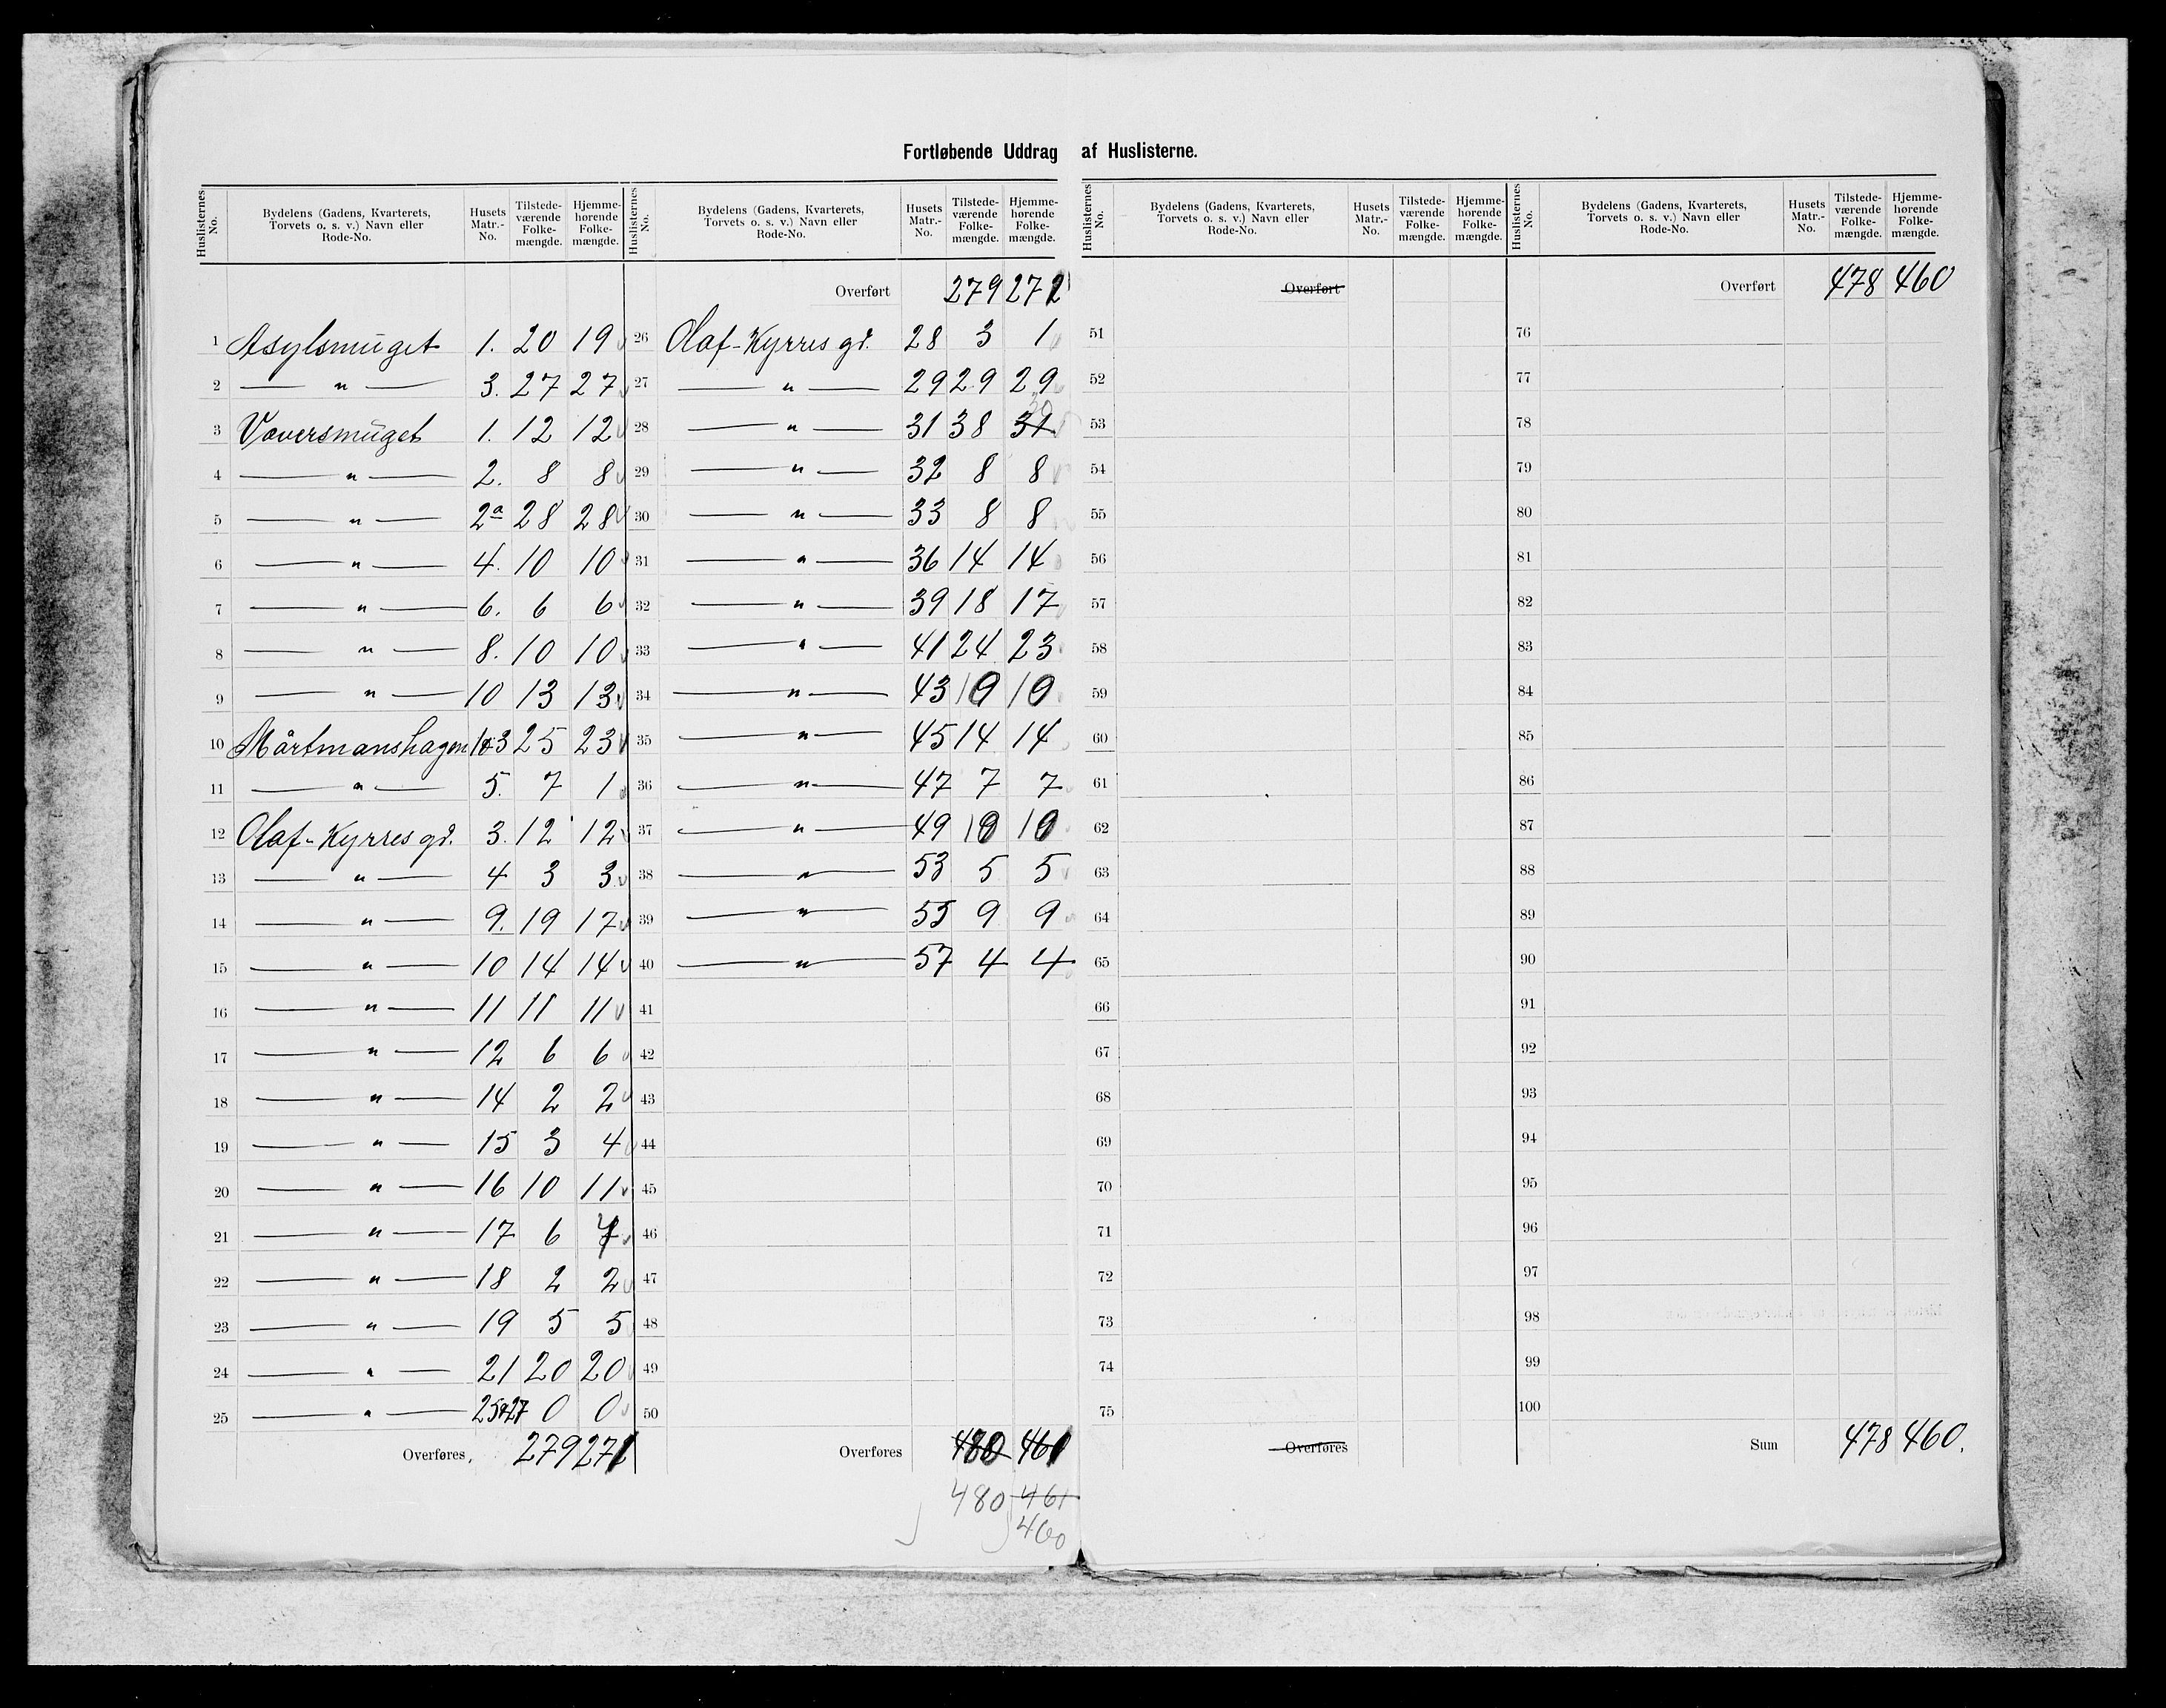 Fortløbende Uddrag af Huslisterne.
Huslisternes No. | Bydelens (Gadens, Kvarterets, Torvets o. s. v.) Navn eller Rode-No. | Husets Matr.-No. | Tilstedeværende Folkemængde. | Hjemmehørende Folkemængde.
1 Asylsmuget 1. 20 19
2 — " — 3. 27 27
3 Væversmuget 1. 12 12
4 — " — 2. 8 8
5 — " — 2a 28 28
6 — " — 4. 10 10
7 — " — 6. 6 6
8 — " — 8. 10 10
9 — " — 10 13 13
10 Mårtmanshagen 1&3 25 23
11 — " — 5. 7 1
12 Olaf-Kyrres gd. 3. 12 12
13 — " — 4 3 3
14 — " — 9. 19 17
15 — " — 10 14 14
16 — " — 11 11 11
17 — " — 12 6 6
18 — " — 14 2 2
19 — " — 15 3 4
20 — " — 16 10 11
21 — " — 17 6 7
22 — " — 18 2 2
23 — " — 19 5 5
24 — " — 21 20 20
25 — " — 25&27 0 0
Overføres 279 271
Huslisternes No. | Bydelens (Gadens, Kvarterets, Torvets o. s. v.) Navn eller Rode-No. | Husets Matr.-No. | Tilstedeværende Folkemængde. | Hjemmehørende Folkemængde.
Overført 279 271
26 Olaf-Kyrres gd. 28 3 1
27 — " — 29 29 29
28 — " — 31 38 31 30
29 — " — 32 8 8
30 — " — 33 8 8
31 — " — 36 14 14
32 — " — 39 18 17
33 — " — 41 24 23
34 — " — 43 10 10
35 — " — 45 14 14
36 — " — 47 7 7
37 — " — 49 10 10
38 — " — 53 5 5
39 — " — 55 9 9
40 — " — 57 4 4
41
42
43
44
45
46
47
48
49
50
Overføres 480 461
480 461
460
Huslisternes No. | Bydelens (Gadens, Kvarterets, Torvets o. s. v.) Navn eller Rode-No. | Husets Matr.-No. | Tilstedeværende Folkemængde. | Hjemmehørende Folkemængde.
Overført
51
52
53
54
55
56
57
58
59
60
61
62
63
64
65
66
67
68
69
70
71
72
73
74
75
Overføres
Huslisternes No. | Bydelens (Gadens, Kvarterets, Torvets o. s. v.) Navn eller Rode-No. | Husets Matr.-No. | Tilstedeværende Folkemængde. | Hjemmehørende Folkemængde.
Overført 478 460
76
77
78
79
80
81
82
83
84
85
86
87
88
89
90
91
92
93
94
95
96
97
98
99
100
Sum 478 460.